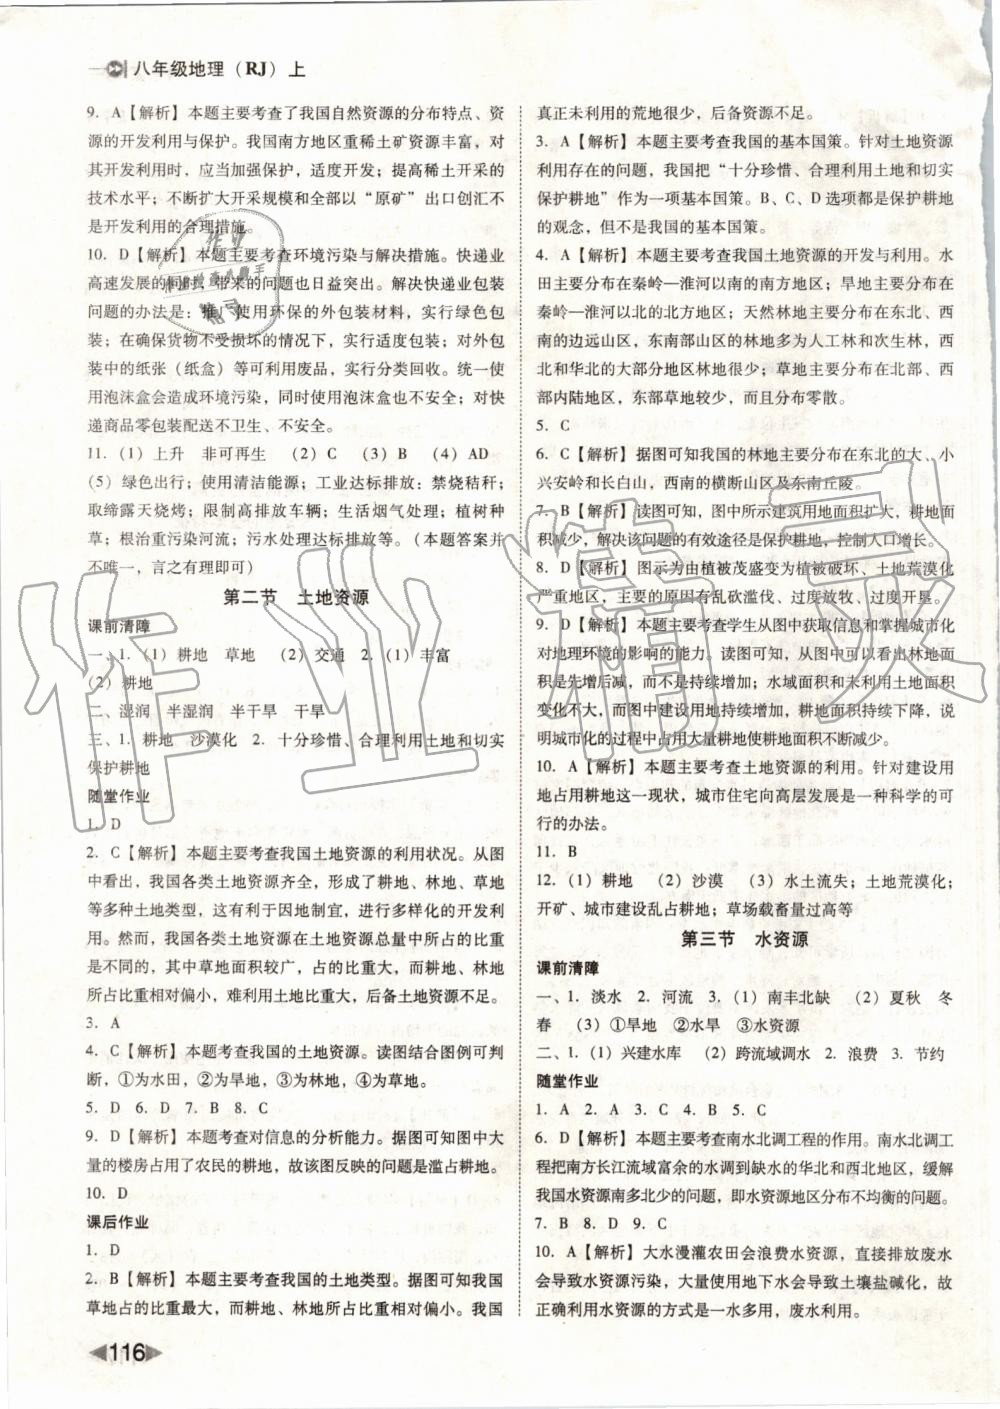 八年级地理（RJ）上
9. A【解析】本题主要考查了我国自然资源的分布特点、资
源的开发利用与保护。我国南方地区重稀土矿资源丰富，对
其开发利用时，应当加强保护，适度开发；提高稀土开采的
技术水平；不断扩大开采规模和全部以“原矿”出口创汇不
是开发利用的合理措施。
10. D【解析】本题主要考查环境污染与解决措施。快递业
高速发展的同时，带来的问题也日益突出。解决快递业包装
问题的办法是：推广使用环保的外包装材料，实行绿色包
装；在确保货物不受损坏的情况下，实行适度包装；对外包
装中的纸张（纸盒）等可利用废品，实行分类回收。统一使
用泡沫盒会造成环境污染，同时使用泡沫盒也不安全；对快
递商品零包装配送不卫生、不安全。
11.（1）上升　非可再生　（2）C　（3）B　（4）AD
（5）绿色出行；使用清洁能源；工业达标排放；禁烧秸秆；
取缔露天烧烤；限制高排放车辆；生活烟气处理；植树种
草；根治重污染河流；污水处理达标排放等。（本题答案并
不唯一，言之有理即可）
第二节　土地资源
课前清障
一、1.（1）耕地　草地　（2）交通　2.（1）丰富
（2）耕地
二、湿润　半湿润　半干旱　干旱
三、1. 耕地　沙漠化　2. 十分珍惜、合理利用土地和切实
保护耕地
随堂作业
1. D
2. C【解析】本题主要考查我国土地资源的利用状况。从图
中看出，我国各类土地资源齐全，形成了耕地、林地、草地
等多种土地类型，这有利于因地制宜，进行多样化的开发利
用。然而，我国各类土地资源在土地资源总量中所占的比重
是不同的，其中草地面积较广，占的比重大，而耕地、林地
所占比重相对偏小，难利用土地比重大，后备土地资源不足。
3. A
4. C【解析】本题考查我国的土地资源。读图结合图例可判
断，①为水田，②为旱地，③为林地，④为草地。
5. D　6. D　7. B　8. C
9. D【解析】本题考查对信息的分析能力。据图可知图中大
量的楼房占用了农民的耕地，故该图反映的问题是滥占耕地。
10. D
课后作业
1. D
2. B【解析】本题主要考查我国的土地类型。据图可知我国
草地占的比重最大，而耕地、林地所占比重相对偏小。我国
116
真正未利用的荒地很少，后备资源不足。
3. A【解析】本题主要考查我国的基本国策。针对土地资源
利用存在的问题，我国把“十分珍惜、合理利用土地和切实
保护耕地”作为一项基本国策。B、C、D选项都是保护耕地
的观念，但不是我国的基本国策。
4. A【解析】本题主要考查我国土地资源的开发与利用。水
田主要分布在秦岭—淮河以南的南方地区；旱地主要分布在
秦岭—淮河以北的北方地区；天然林地主要分布在东北、西
南的边远山区，东南部山区的林地多为人工林和次生林，西
北和华北的大部分地区林地很少；草地主要分布在北部、西
部内陆地区，东部草地较少，而且分布零散。
5. C
6. C【解析】据图可知我国的林地主要分布在东北的大、小
兴安岭和长白山，西南的横断山区及东南丘陵。
7. B【解析】读图可知，图中所示建筑用地面积扩大，耕地面
积减少，解决该问题的有效途径是保护耕地，控制人口增长。
8. D【解析】图示为由植被茂盛变为植被破坏、土地荒漠化
严重地区，主要的原因有乱砍滥伐、过度放牧、过度开垦。
9. D【解析】本题主要考查学生从图中获取信息和掌握城市化
对地理环境的影响的能力。读图可知，从图中可以看出林地面
积是先增后减，而不是持续增加；水域面积和未利用土地面积
变化不大，而图中建设用地持续增加，耕地面积持续下降，说
明城市化的过程中占用大量耕地使耕地面积不断减少。
10. A【解析】本题主要考查土地资源的利用。针对建设用
地占用耕地这一现状，城市住宅向高层发展是一种科学的可
行的办法。
11. B
12.（1）耕地　（2）沙漠　（3）水土流失；土地荒漠化；
开矿、城市建设乱占耕地；草场载畜量过高等
第三节　水资源
课前清障
一、1. 淡水　2. 河流　3.（1）南丰北缺　（2）夏秋　冬
春　（3）①旱地　②水旱　③水资源
二、1.（1）兴建水库　（2）跨流域调水　2. 浪费　3. 节约
随堂作业
1. A　2. A　3. C　4. B　5. C
6. D【解析】本题主要考查南水北调工程的作用。南水北调工
程把南方长江流域富余的水调到缺水的华北和西北地区，缓解
我国水资源南多北少的问题，即水资源地区分布不均衡的问题。
7. B　8. D　9. C
10. A【解析】大水漫灌农田会浪费水资源，直接排放废水
会导致水资源污染，大量使用地下水会导致土壤盐碱化，故
正确利用水资源的方式是一水多用，废水利用。
作业精灵